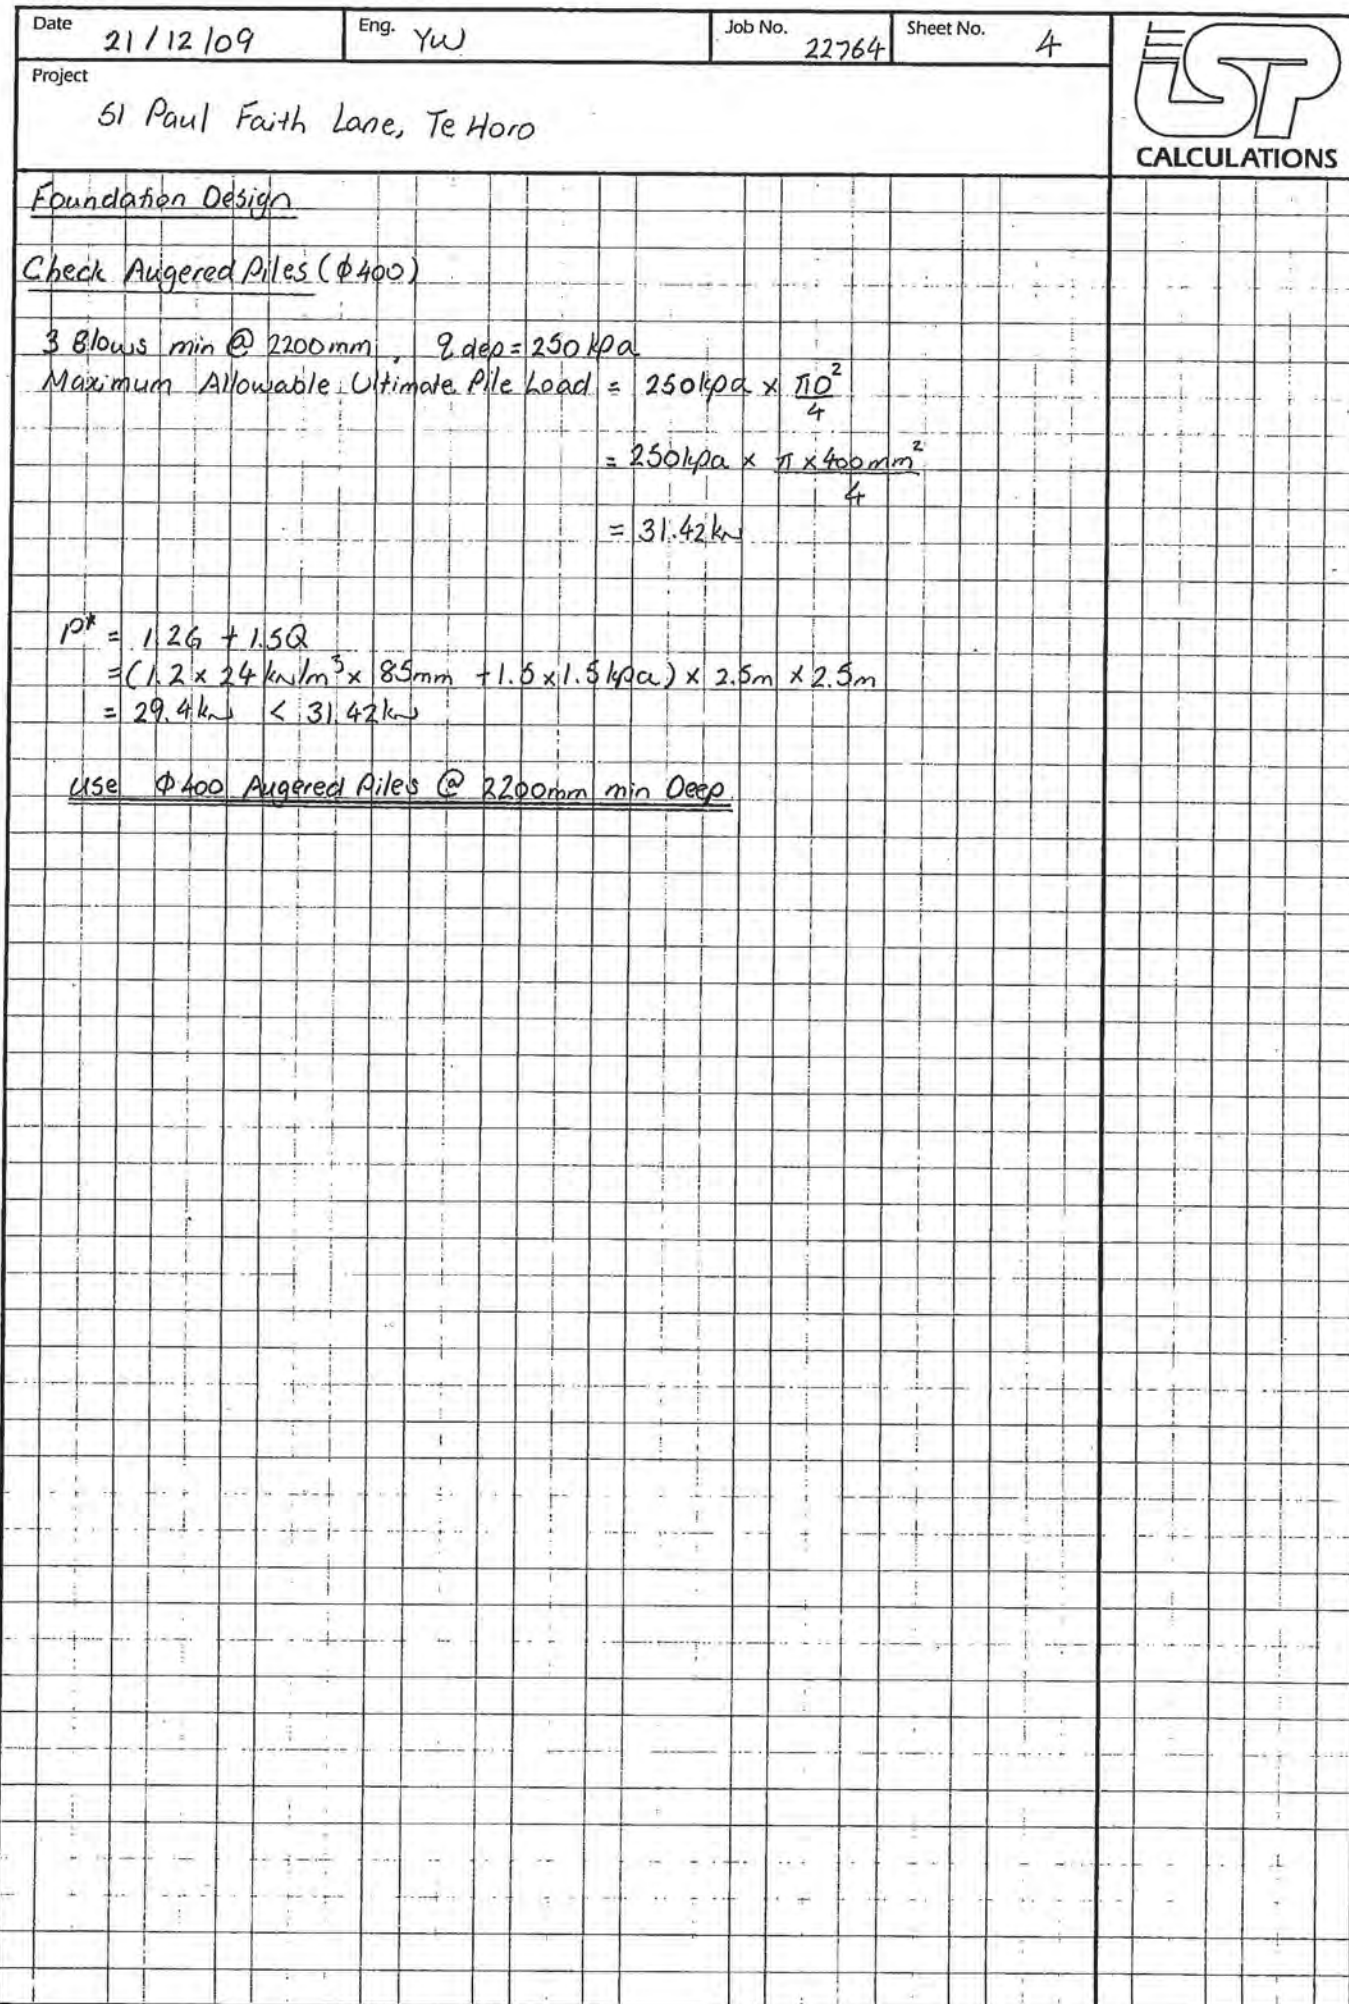 Date 21/12/09 Eng. YW Job No. 22764 Sheet No. 4
Project
51 Paul Faith Lane, Te Horo
ISP
CALCULATIONS
Foundation Design
Check Augered Piles (ϕ400)
3 Blows min @ 2200mm, q dep = 250kpa
Maximum Allowable Ultimate Pile Load = 250kpa × πD²/4
= 250kpa × π × 400mm²/4
= 31.42kN
P* = 1.2G + 1.5Q
= (1.2 × 24 kN/m³ × 85mm + 1.5 × 1.5kpa) × 2.5m × 2.5m
= 29.4kN < 31.42kN
Use ϕ400 Augered Piles @ 2200mm min Deep.